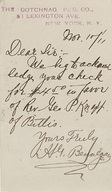 THE GOTCHNAG PUB. CO.,
51 LEXINGTON AVE.
NEW YORK, N. Y.
Nov. 10/11
Dear Sir:-
We beg to acknow-
ledge your check
for in favor
of Rev. Geo. P. Knapp
of Bitlis.
Yours Truly